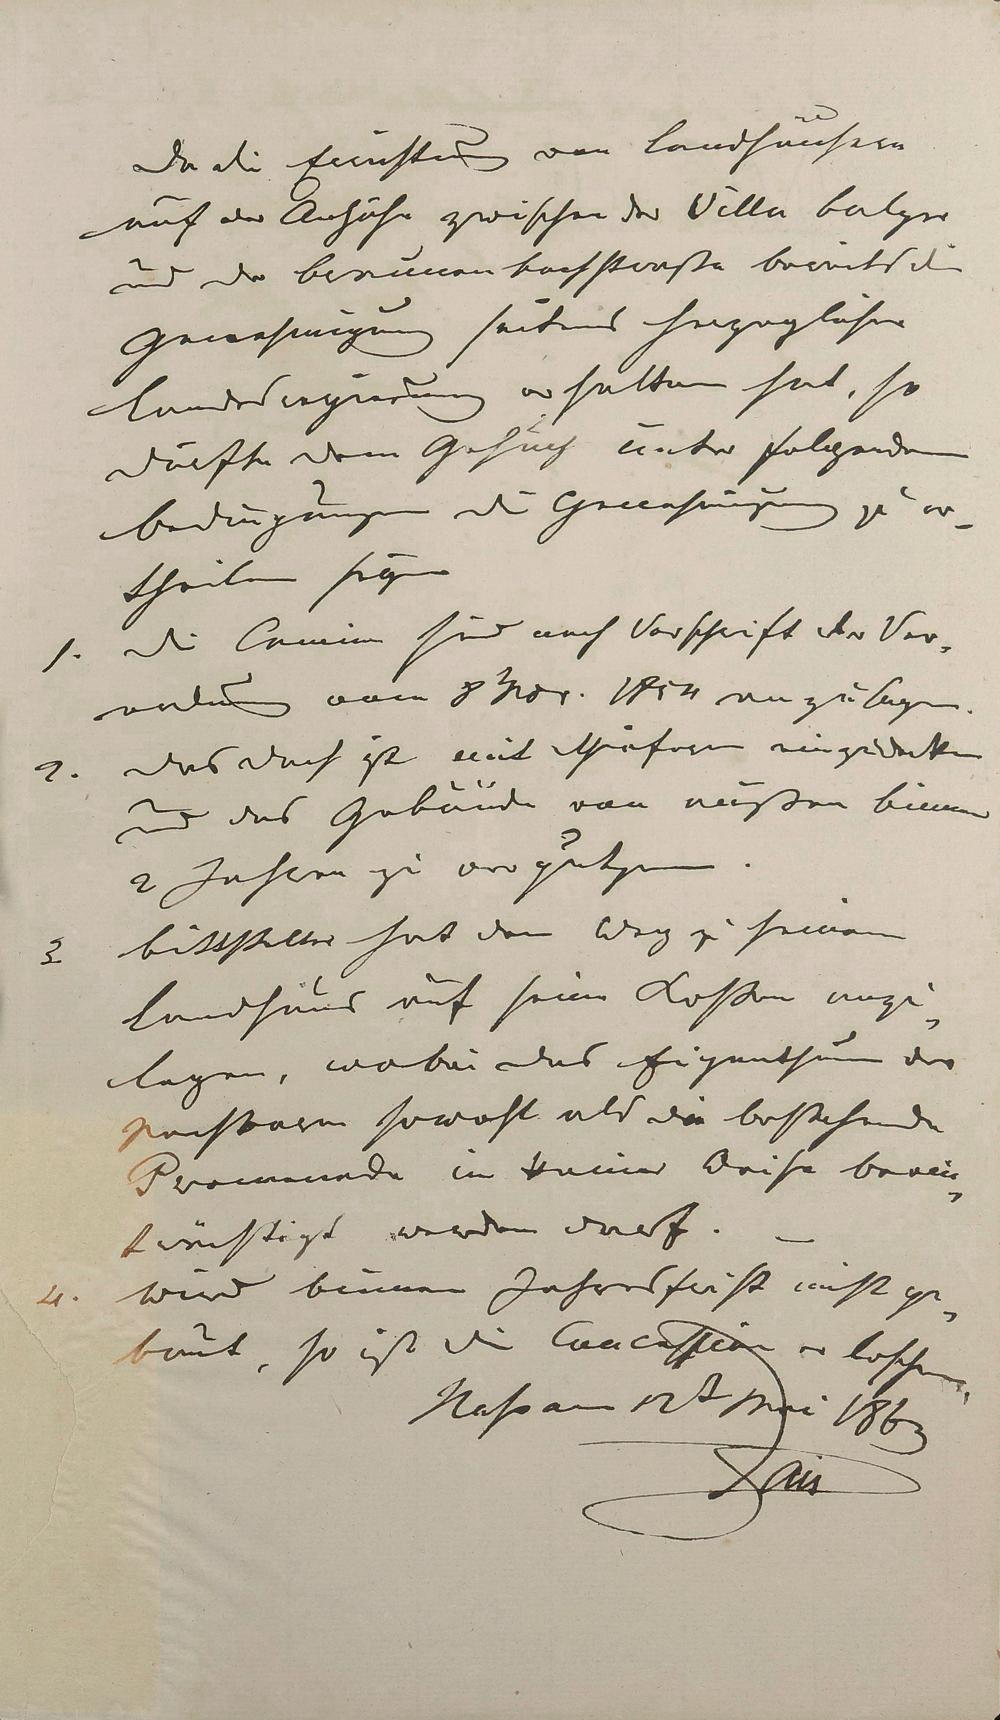 Da die Errichtung von Landhäusern
auf der Anhöhe zwischen der Villa Balzer
und der Brunnenbachstraße bereits die
Genehmigung seitens Herzoglicher
Landesregierung erhalten hat, so
dürfte dem Gesuch unter folgenden
Bedingungen die Genehmigung zu er-
theilen sein
1. Die Camine sind nach Vorschrift der Ver-
ordnung vom 8 Nov. 1854 anzulegen.
2. Das Dach ist mit Schiefern einzudecken
und das Gebäude von außen binnen
2 Jahren zu verputzen.
3 Bittsteller hat den Weg zu seinem
Landhaus auf seine Kosten anzu-
legen, wobei das Eigenthum der
Nachbarn sowohl als die bestehende
Promenade in keiner Weise beein-
trächtigt werden darf. –
4. Wird binnen Jahresfrist nicht ge-
baut, so ist die Concession erloschen.
Nassau 12t Mai 1863